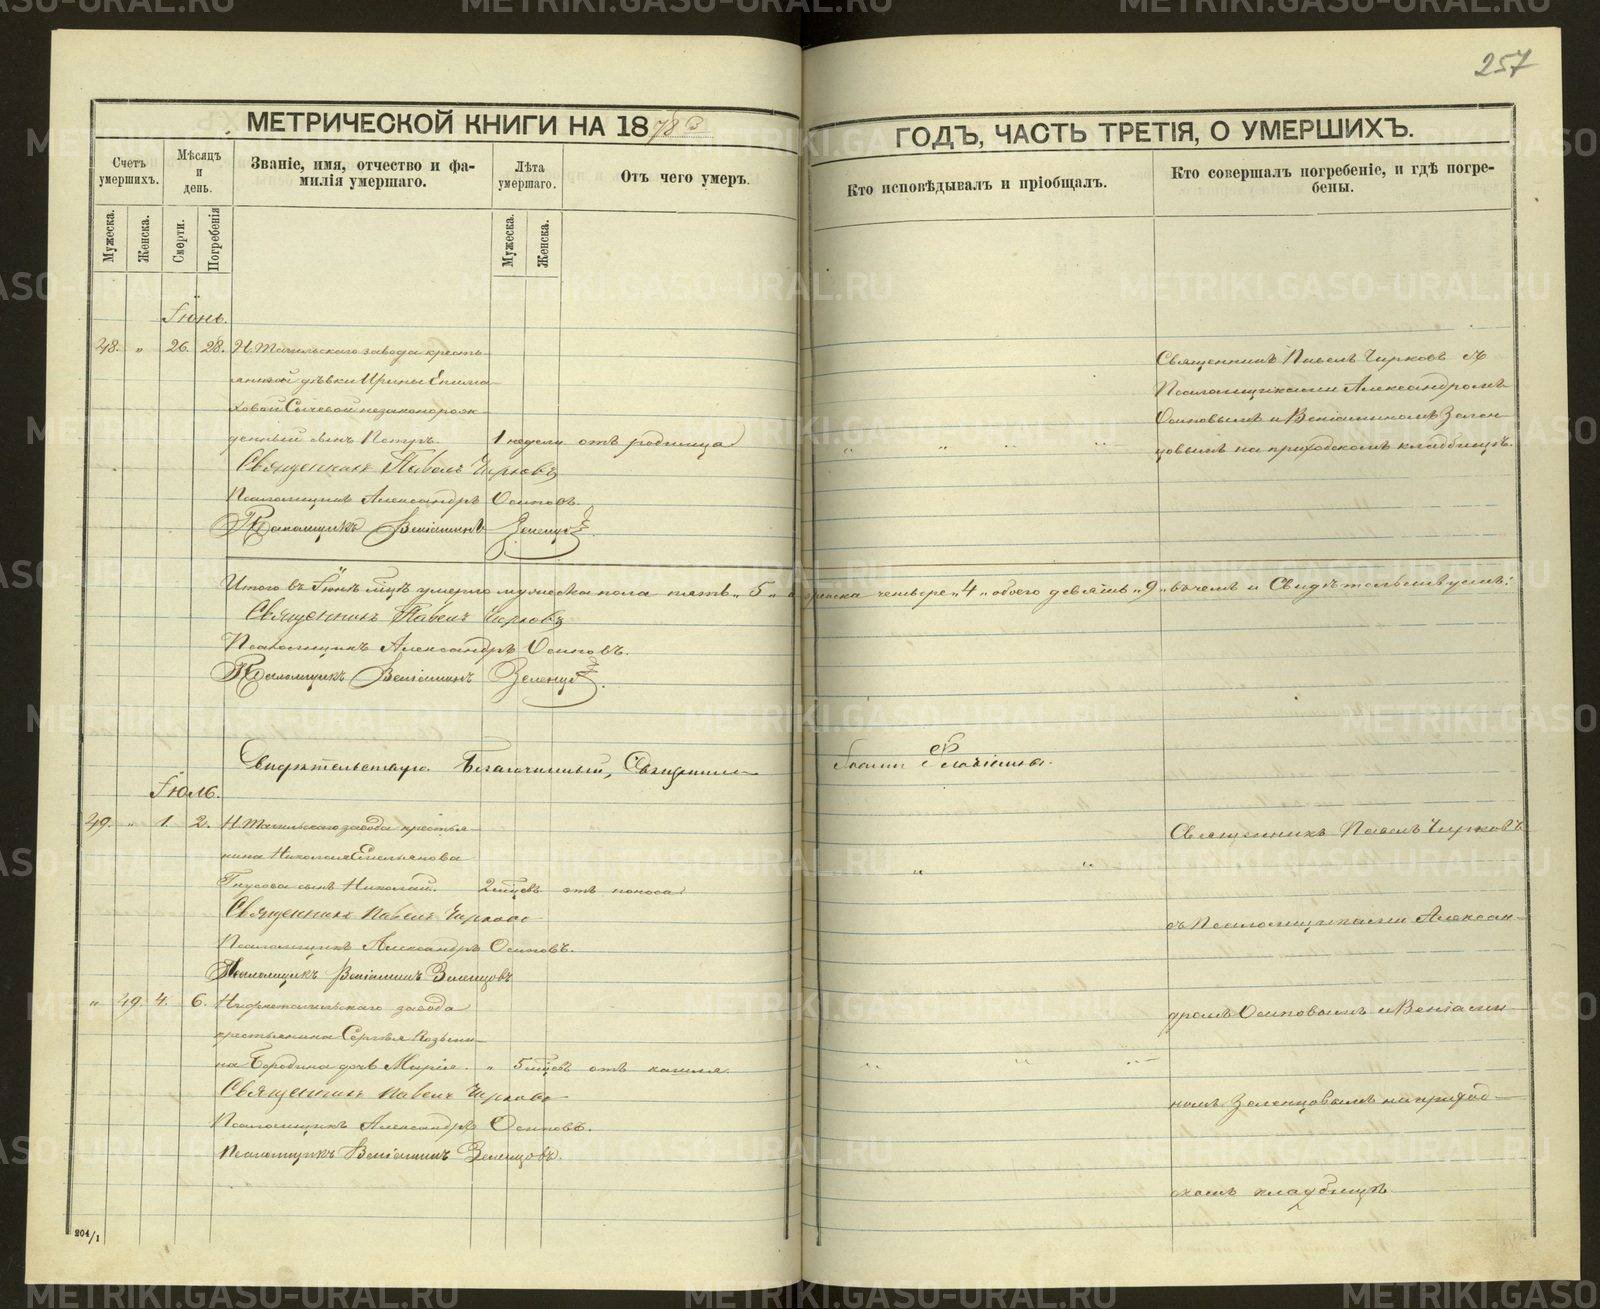 257
МЕТРИЧЕСКОЙ КНИГИ НА 1878 ГОДЪ, ЧАСТЬ ТРЕТІЯ, О УМЕРШИХЪ.
Счетъ умершихъ.
Мѣсяцъ и день.
Званіе, имя, отчество и фамилія умершаго.
Лѣта умершаго.
Отъ чего умеръ.
Кто исповѣдывалъ и пріобщалъ.
Кто совершалъ погребеніе, и гдѣ погребены.
Мужеска.
Женска.
Смерти.
Погребенія
Мужеска.
Женска.
Іюнь.
48. " 26. 28. Н. Тагильскаго завода кресть
янской дѣвки Ирины Епима
ховой Сычевой незаконорож
денный сынъ Петръ. 1 недели отъ родимца
Священникъ Павелъ Чирковъ съ
Псаломщиками Александромъ
Осиповымъ и Веніаминомъ Зелен
цовымъ на приходскомъ кладбищѣ.
Священникъ Павелъ Чирковъ
Псаломщикъ Александръ Осиповъ.
Псаломщикъ Веніаминъ Зеленцовъ
Итого въ Іюнѣ мцѣ умерло мужеска пола пять "5" а женска четыре "4" обоего девять "9" въ чемъ и свидѣтельствуемъ:
Священникъ Павелъ Чирковъ
Псаломщикъ Александръ Осиповъ.
Псаломщикъ Веніаминъ Зеленцовъ.
Свидѣтельствую. Благочинный, Священникъ
Іюль.
49. " 1. 2. Н. Тагильскаго завода крестья
нина Николая Емельянова
Гнусова сынъ Николай. 2 мцевъ отъ поноса
Священникъ Павелъ Чирковъ
Псаломщикъ Александръ Осиповъ.
Псаломщикъ Веніаминъ Зеленцовъ
" 49. 4. 6. Нижнетагильскаго завода
крестьянина Сергѣя Козьми
на Бородина дочь Марія. " 5 мцевъ отъ кашля.
Священникъ Павелъ Чирковъ
Псаломщикъ Александръ Осиповъ.
Псаломщикъ Веніаминъ Зеленцовъ.
Священникъ Павелъ Чирковъ
съ Псаломщиками Алексан
дромъ Осиповымъ и Веніами
номъ Зеленцовымъ на приход
скомъ кладбищѣ
204/1
METRIKI.GASO-URAL.RU